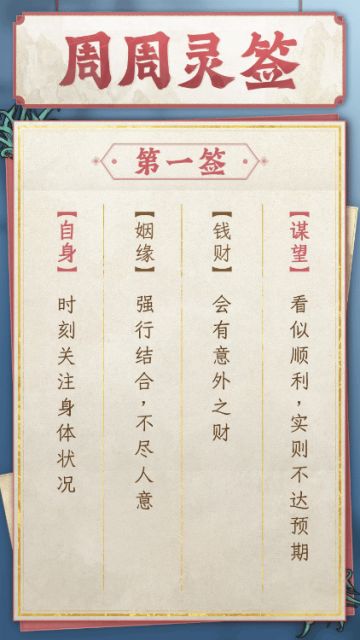 周周灵签
第一签
【谋望】
看似顺利，实则不达预期
【钱财】
会有意外之财
【姻缘】
强行结合，不尽人意
【自身】
时刻关注身体状况